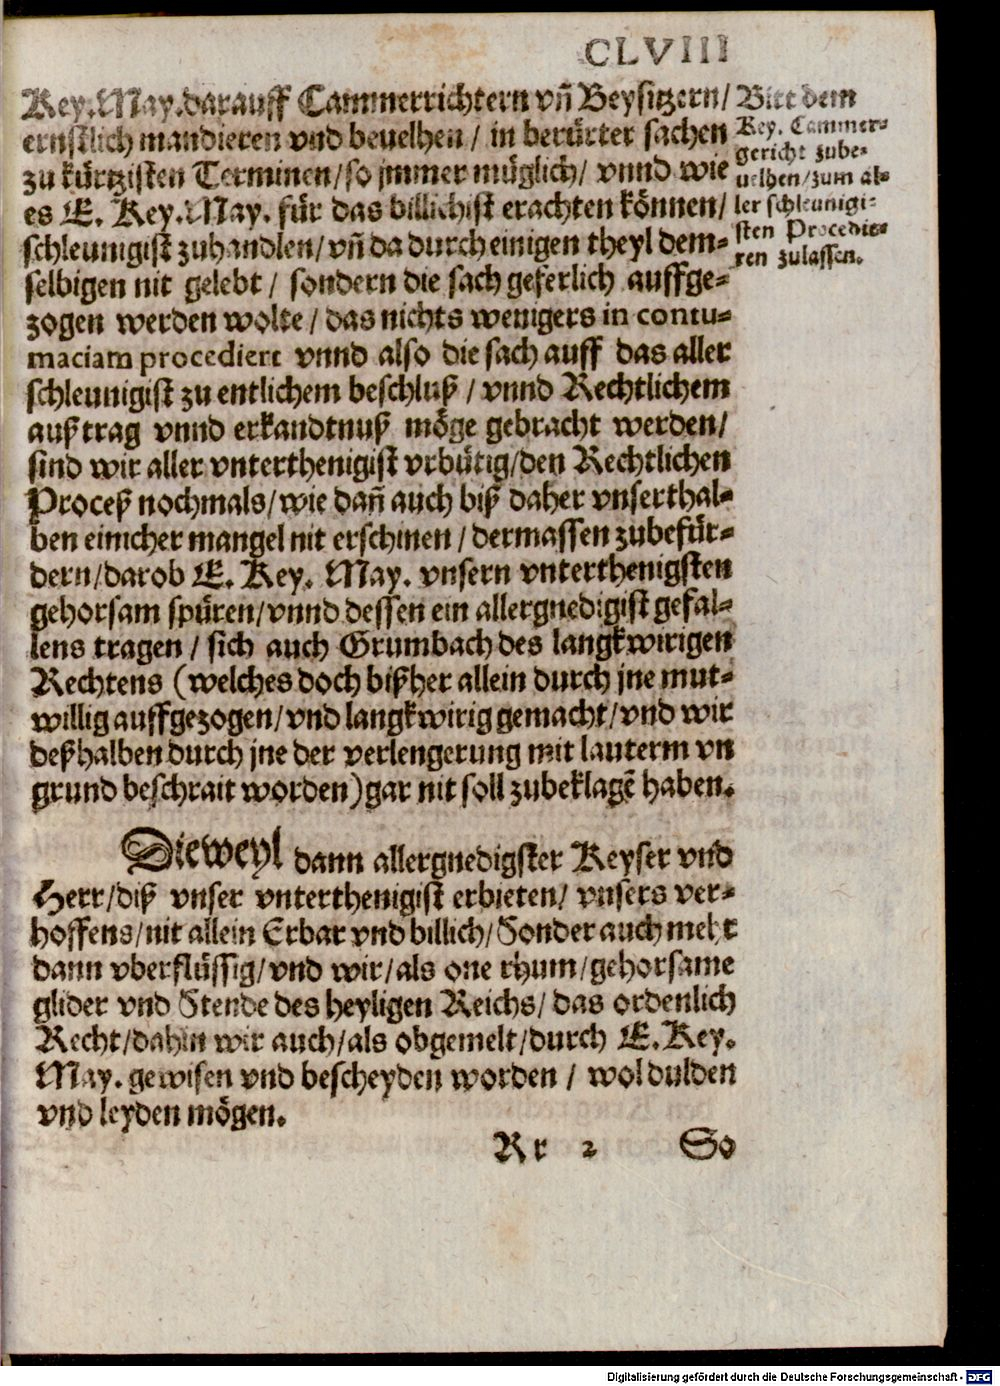 CLVIII
Key. May. darauff Cammerrichtern vñ Beysitzern/
ernstlich mandieren vnd beuelhen / in berürter sachen
zu kürtzisten Terminen/so jmmer müglich/ vnnd wie
es E. Key. May. für das billichist erachten können/
schleunigist zuhandlen/vñ da durch einigen theyl dem-
selbigen nit gelebt / sondern die sach geferlich auffge-
zogen werden wolte / das nichts wenigers in contu-
maciam procediert vnnd also die sach auff das aller
schleunigist zu entlichem beschluß / vnnd Rechtlichem
außtrag vnnd erkandtnuß möge gebracht werden/
sind wir aller vnterthenigist vrbütig/den Rechtlichen
Proceß nochmals/wie dañ auch biß daher vnserthal-
ben einicher mangel nit erschinen / dermassen zubefür-
dern/darob E. Key. May. vnsern vnterthenigsten
gehorsam spüren/vnnd dessen ein allergnedigist gefal-
lens tragen / sich auch Grumbach des langkwirigen
Rechtens (welches doch bißher allein durch jne mut-
willig auffgezogen/vnd langkwirig gemacht/vnd wir
deßhalben durch jne der verlengerung mit lauterm vn
grund beschrait worden)gar nit soll zubeklagẽ haben.
Bitt dem
Key. Cammer-
gericht zube-
uelhen/zum al-
ler schleunigi-
sten Procedie-
ren zulassen.
Dieweyl dann allergnedigster Keyser vnd
Herr/diß vnser vnterthenigist erbieten/ vnsers ver-
hoffens/nit allein Erbar vnd billich/Sonder auch mehr
dann vberflüssig/vnd wir/als one rhum/gehorsame
glider vnd Stende des heyligen Reichs/ das ordenlich
Recht/dahin wir auch/als obgemelt/durch E. Key.
May. gewisen vnd bescheyden worden / wol dulden
vnd leyden mögen.
Rr 2 So
Digitalisierung gefördert durch die Deutsche Forschungsgemeinschaft - DFG